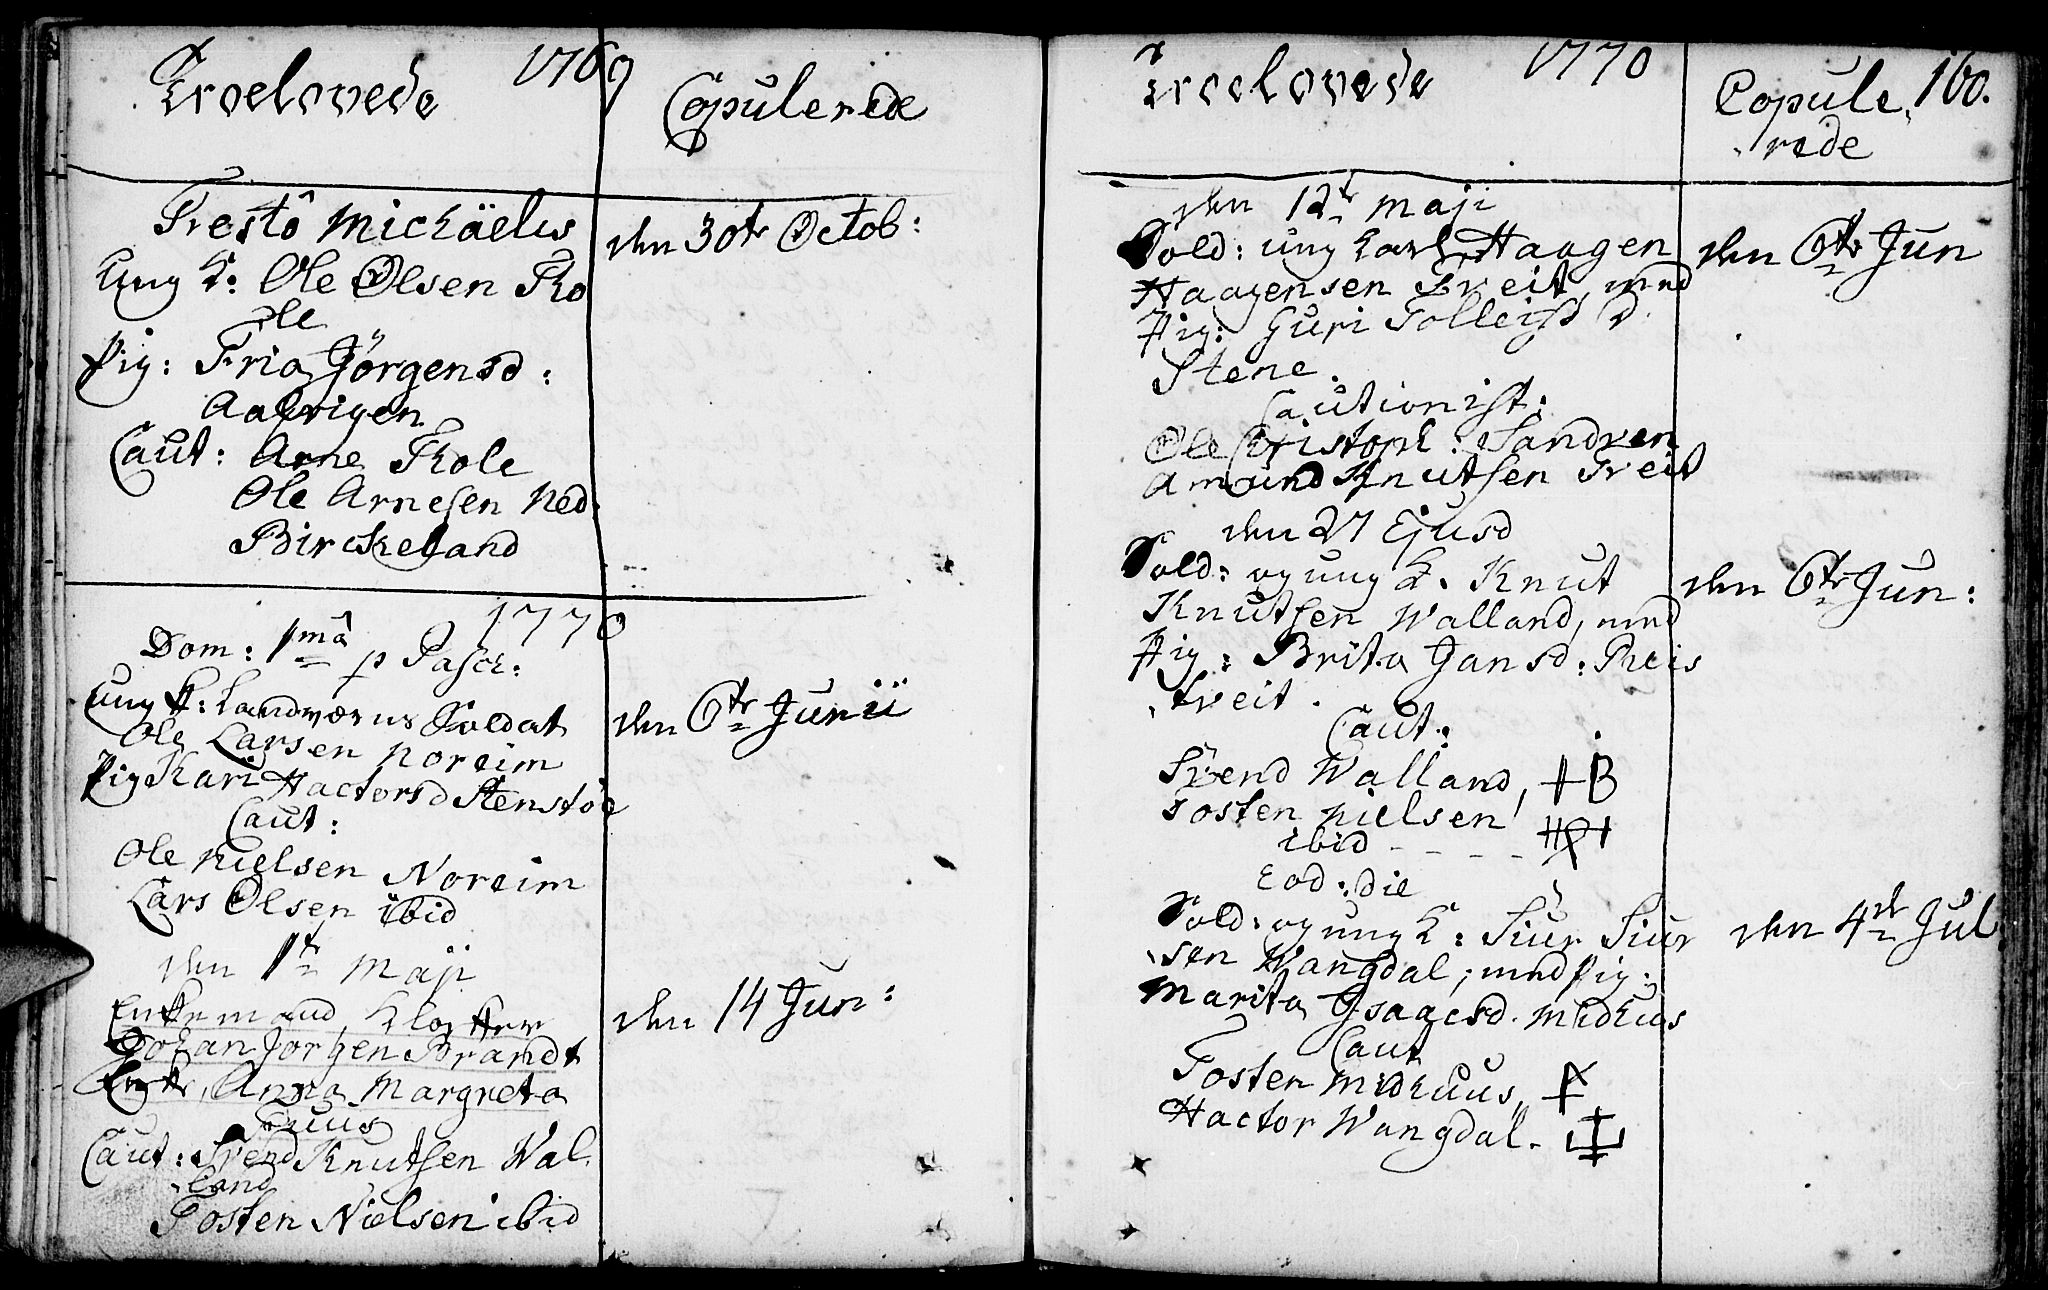 Troelovede 1769
Copulerede
Festô Michäelis
Ung K: Ole Olsen Tko
le
Pig: Fria Jörgensd:
Aalvigen
Caut: Arne Tkole
Ole Arnesen Ned:
Birckeland
den 30te Octob:
1770
Dom: 1mâ p Pasch:
ung K: Landværns Soldat
Ole Larsen Noreim
Pig Kari Hactorsd Stenstöe
Caut:
Ole Nielsen Noreim
Lars Olsen ibid
den 6te Junii
den 1te Maji
Enkemand, Klocker
Johan Jörgen Brandt
Enke, Anna Margreta
Tuus
Caut: Svend Knutsen Wal
land
Tosten Nielsen ibid
den 14 Jun:
Troelovede 1770
Copule 160.
rede
den 12te Maji
Sold: ung Karl Haagen
Haagensen Tveit, med
Pig: Guri Tolleifsd
Stene.
Cautionist:
Ole Christoph: Sandven
Amund Knutsen Tveit
den 6te Jun
den 27 Ejusd
Sold: og ung K. Knut
Knutsen Walland, med
Pig: Brita Jansd: Reis
tveit.
Caut:
Svend Walland,
Tosten Nielsen
ibid
den 6te Jun:
Eod: die
Sold: og ung K: Siur Siur
sen Wangdal; med Pig:
Marita Isaacsd. Midhus
Caut
Tosten Midhuus,
Hactor Wangdal.
den 4de Jul.